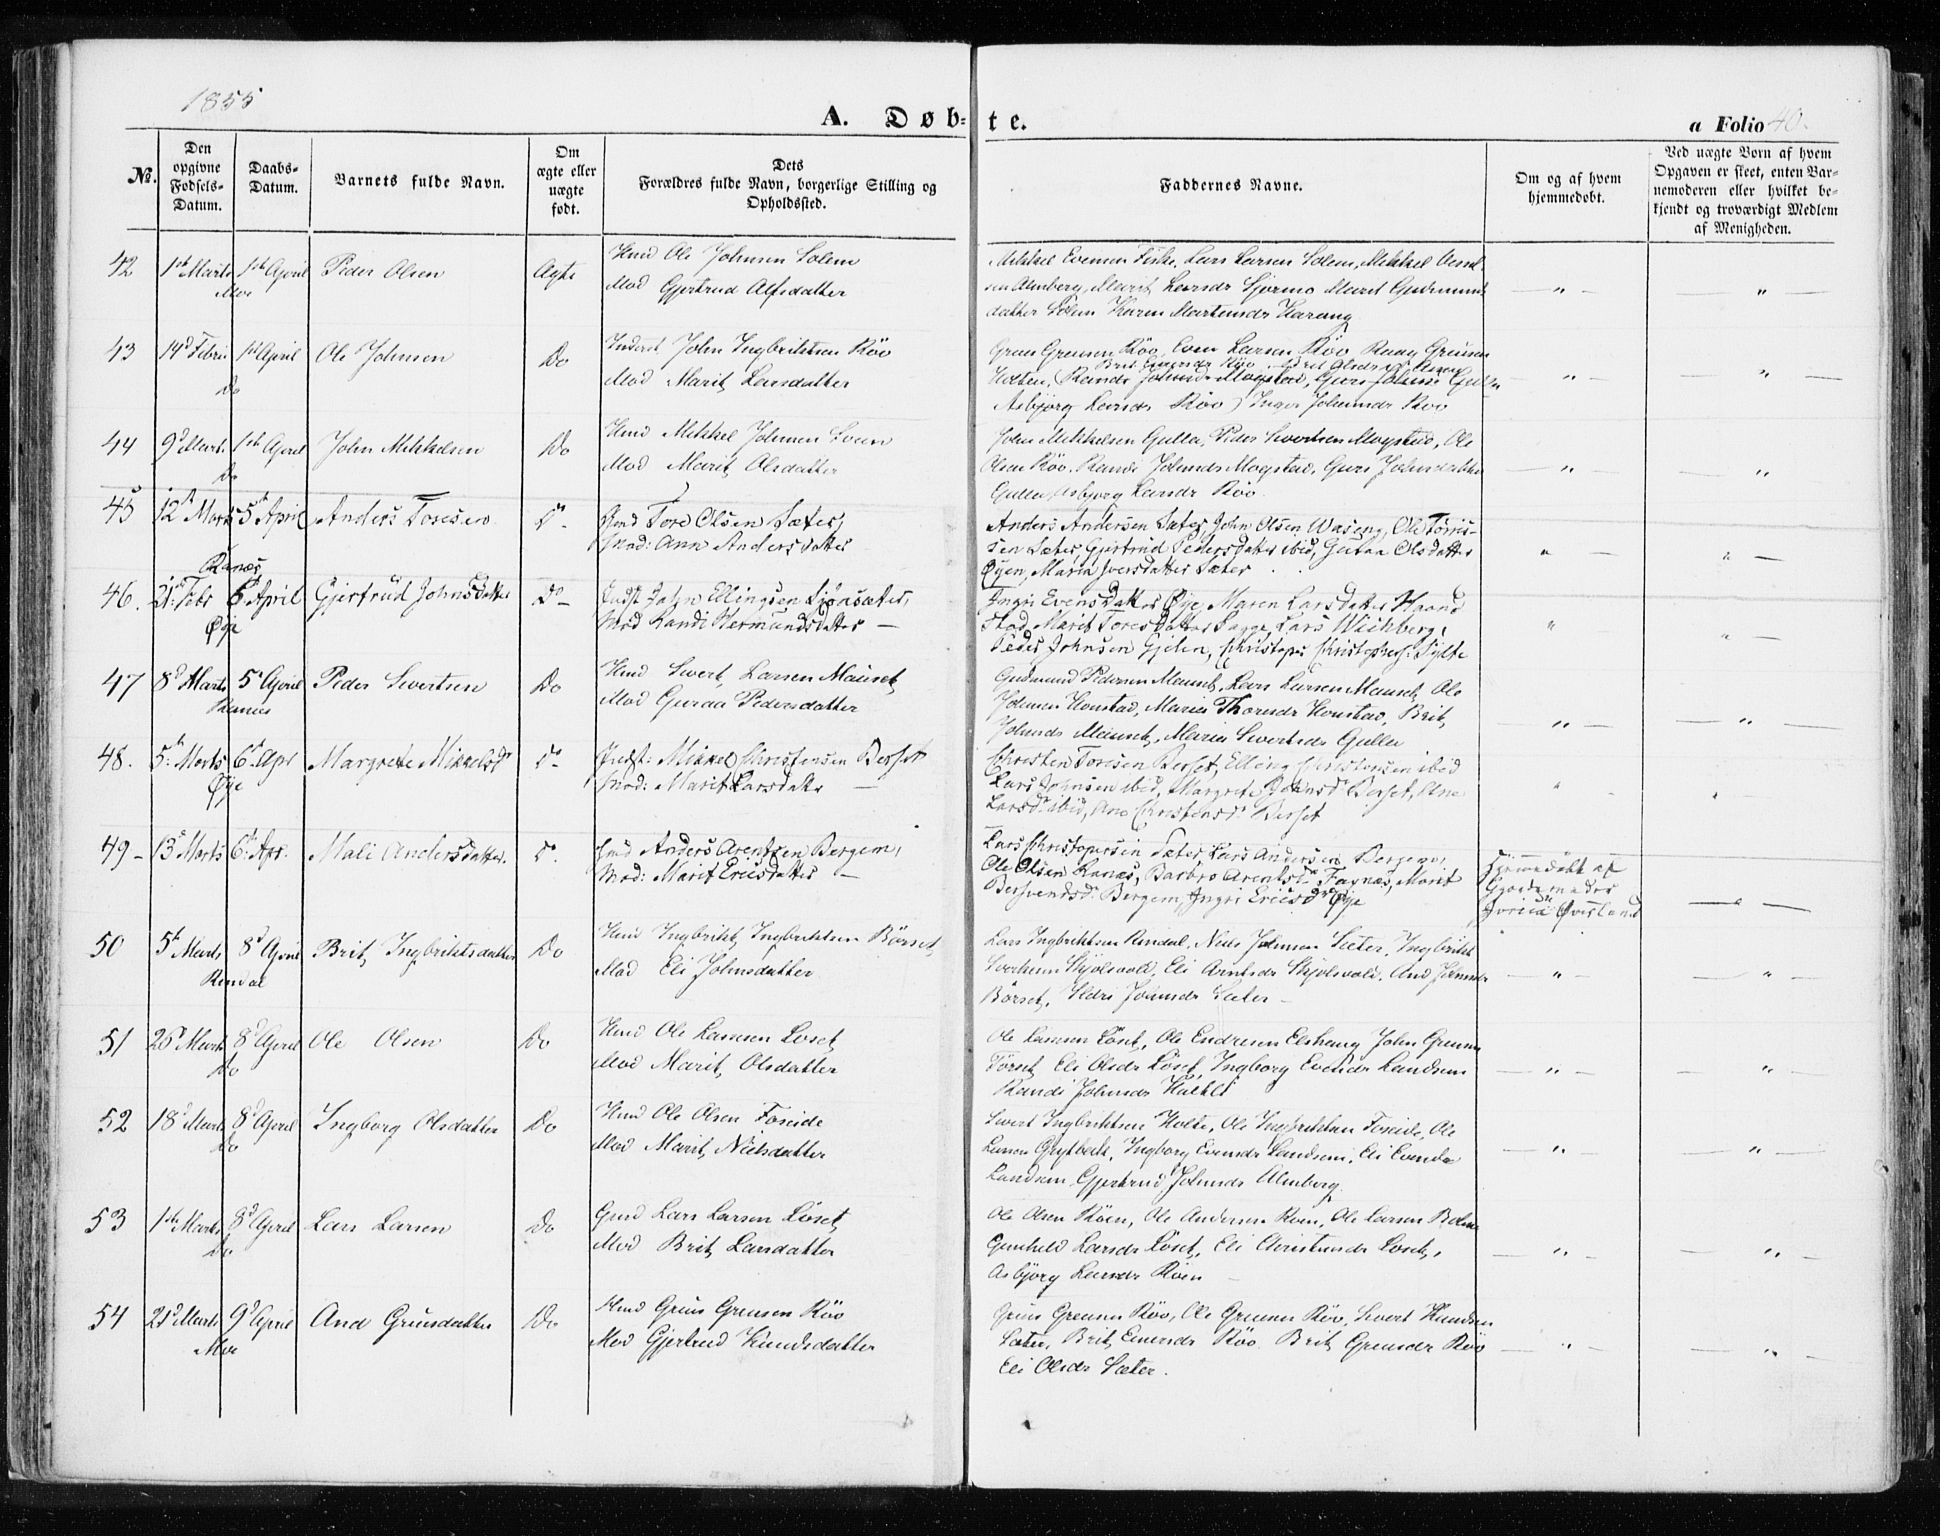 1855
A. Døb-te.
a Folio 40.
No.
Den opgivne Fødsels-Datum.
Daabs-Datum.
Barnets fulde Navn.
Om ægte eller uægte født.
Dets Forældres fulde Navn, borgerlige Stilling og Opholdssted.
Faddernes Navne.
Om og af hvem hjemmedøbt.
Ved uægte Børn af hvem Opgaven er skeet, enten Barnemoderen eller hvilket bekjendt og troværdigt Medlem af Menigheden.
42 1ste Marts 1ste April Peder Olsen Ægte Hmd Ole Johnsen Solem
Moe Mod Gjertrud Alfsdatter
Mikkel Evensen Fiske, Lars Larsen Solem, Mikkel
Almberg, Marit Larsdr Marit Gudmunds
datter Solem Karen Martinsdr Harang
43 14d Febru 1ste April Ole Johnsen Do Inderst John Ingbrihtsen Röv
Do Mod Marit Larsdatter
Even Larsen Röv
Brit Röv
Holten, Randi Johnsdr Mogstad, Guri Gulla
Asbjörg Larsdr Röv Inger Johnsdr Röv
44 9d Marts 1ste April John Mikkelsen Do Hmd Mikkel Johnsen
Do Mod Marit Olsdatter
John Mikkelsen Gulla, Peder Sivertsen Mogstad, Ole
Olsen Röv, Randi Johnsdr Mogstad, Guri Johnsdatter
Gulla, Asbjörg Larsdr Röv
45 12te Marts 5te April Anders Toresen Do Hmd Tore Olsen Sæter,
Ranæs Mod: Ann Andersdatter
Anders Andersen Sæter, John Olsen Waseng, Ole Torris-
sen Sæter, Gjertrud Pedersdatter ibid, Olsdatter
Øyen, Maria Iversdatter Sæter
46. 21de Febr 6te April Gjertrud Johnsdatter Do Indst John Ellingsen
Øye Mod Randi Hermundsdatter
Ingri Evensdatter Øye, Maren Larsdatter Haand
stad, Marit Toresdatter Sagge, Lars Wichberg,
Peder Johnsen Gjelen, Christopher Sylte
47 8d Marts 5te April Peder Sivertsen Do Hmd Sivert Larsen Mauset
Ranæs Mod Guraa Pedersdatter
Gudmund Pedersen Mauset, Lars Larsen Mauset, Ole
Johnsen Honstad, Marie Thoresdr Honstad, Brit
Johnsdr Mauset, Marie Sivertsdr Gulla
48. 5te Marts 6te Apr Margrete Mikkelsdr Do Indst: Mikkel Christensen Berset
Øye Mod: Marit Larsdatter
Christen Toresen Berset, Elling Christensen ibid
Lars Johnsen ibid, Margrete Johnsdr Berset, Ane
Larsdr ibid, Ane Christensdr Berset
49 13de Marts 6te Apr. Mali Andersdatter Do Gmd Anders Arentsen Bergem,
Mod: Marit Ericsdatter
Lars Christophersen Sæter, Lars Andersen Bergem,
Ole Olsen Ranæs, Barbro Arentsdr Fagnæs, Marit
Bersvendsdr Bergem, Ingri Ericsdr Øye
Hjemmedøbt af
Gjordemoder
Øvesland
50 5te Marts 8d April Brit Ingbrihtsdatter Do Hmd Ingbriht Ingbrihtsen Börset
Rendal Mod Eli Johnsdatter
Lars Ingbrihtsen Rindal, Niels Johnsen Sæter, Ingbriht
Sivertsen Skjölsvold, Eli Arntsdr Skjölsvold, And Jonsdr
Börset, Sldri Johnsdr Sæter
51 25 Marts 8d April Ole Olsen Do Hmd Ole Larsen Löset
Do Mod Marit Olsdatter
Ole Larsen Löset, Ole Endresen Elshaug John
Törset, Eli Olsdr Löset, Ingborg Evensdr Landsem
Randi Johnsdr
52 18d Marts 8d April Ingborg Olsdatter Do Hmd Ole Olsen Foseide
Do Mod Marit Nielsdatter
Sivert Ingbrihtsen Holte, Ole Ingbrihtsen Foseide, Ole
Larsen Grytbak, Ingborg Evensdr Landsem, Eli Evensdr
Landsem, Gjertrud Johnsdr Almberg
53 1ste Marts 8d April Lars Larsen Do Gmd Lars Larsen Löset
Do Mod Brit Larsdatter
Ole Olsen Röen, Ole Andersen Röen, Ole Larsen Bolme
Gunhild Larsdr Löset, Eli Christensdr Löset,
Asbjörg Larsdr Röen
54 21d Marts 9d April And Gruusdatter Do Hmd Gruus Gruusen Röv
Moe Mod Gjertrud Knudsdatter
Gruus Gruusen Röv, Ole Gruusen Röv, Sivert Knudsen
Sæter, Brit Evensdr Röv. Brit Gruusdr Röv
Eli Olsdr Sæter.